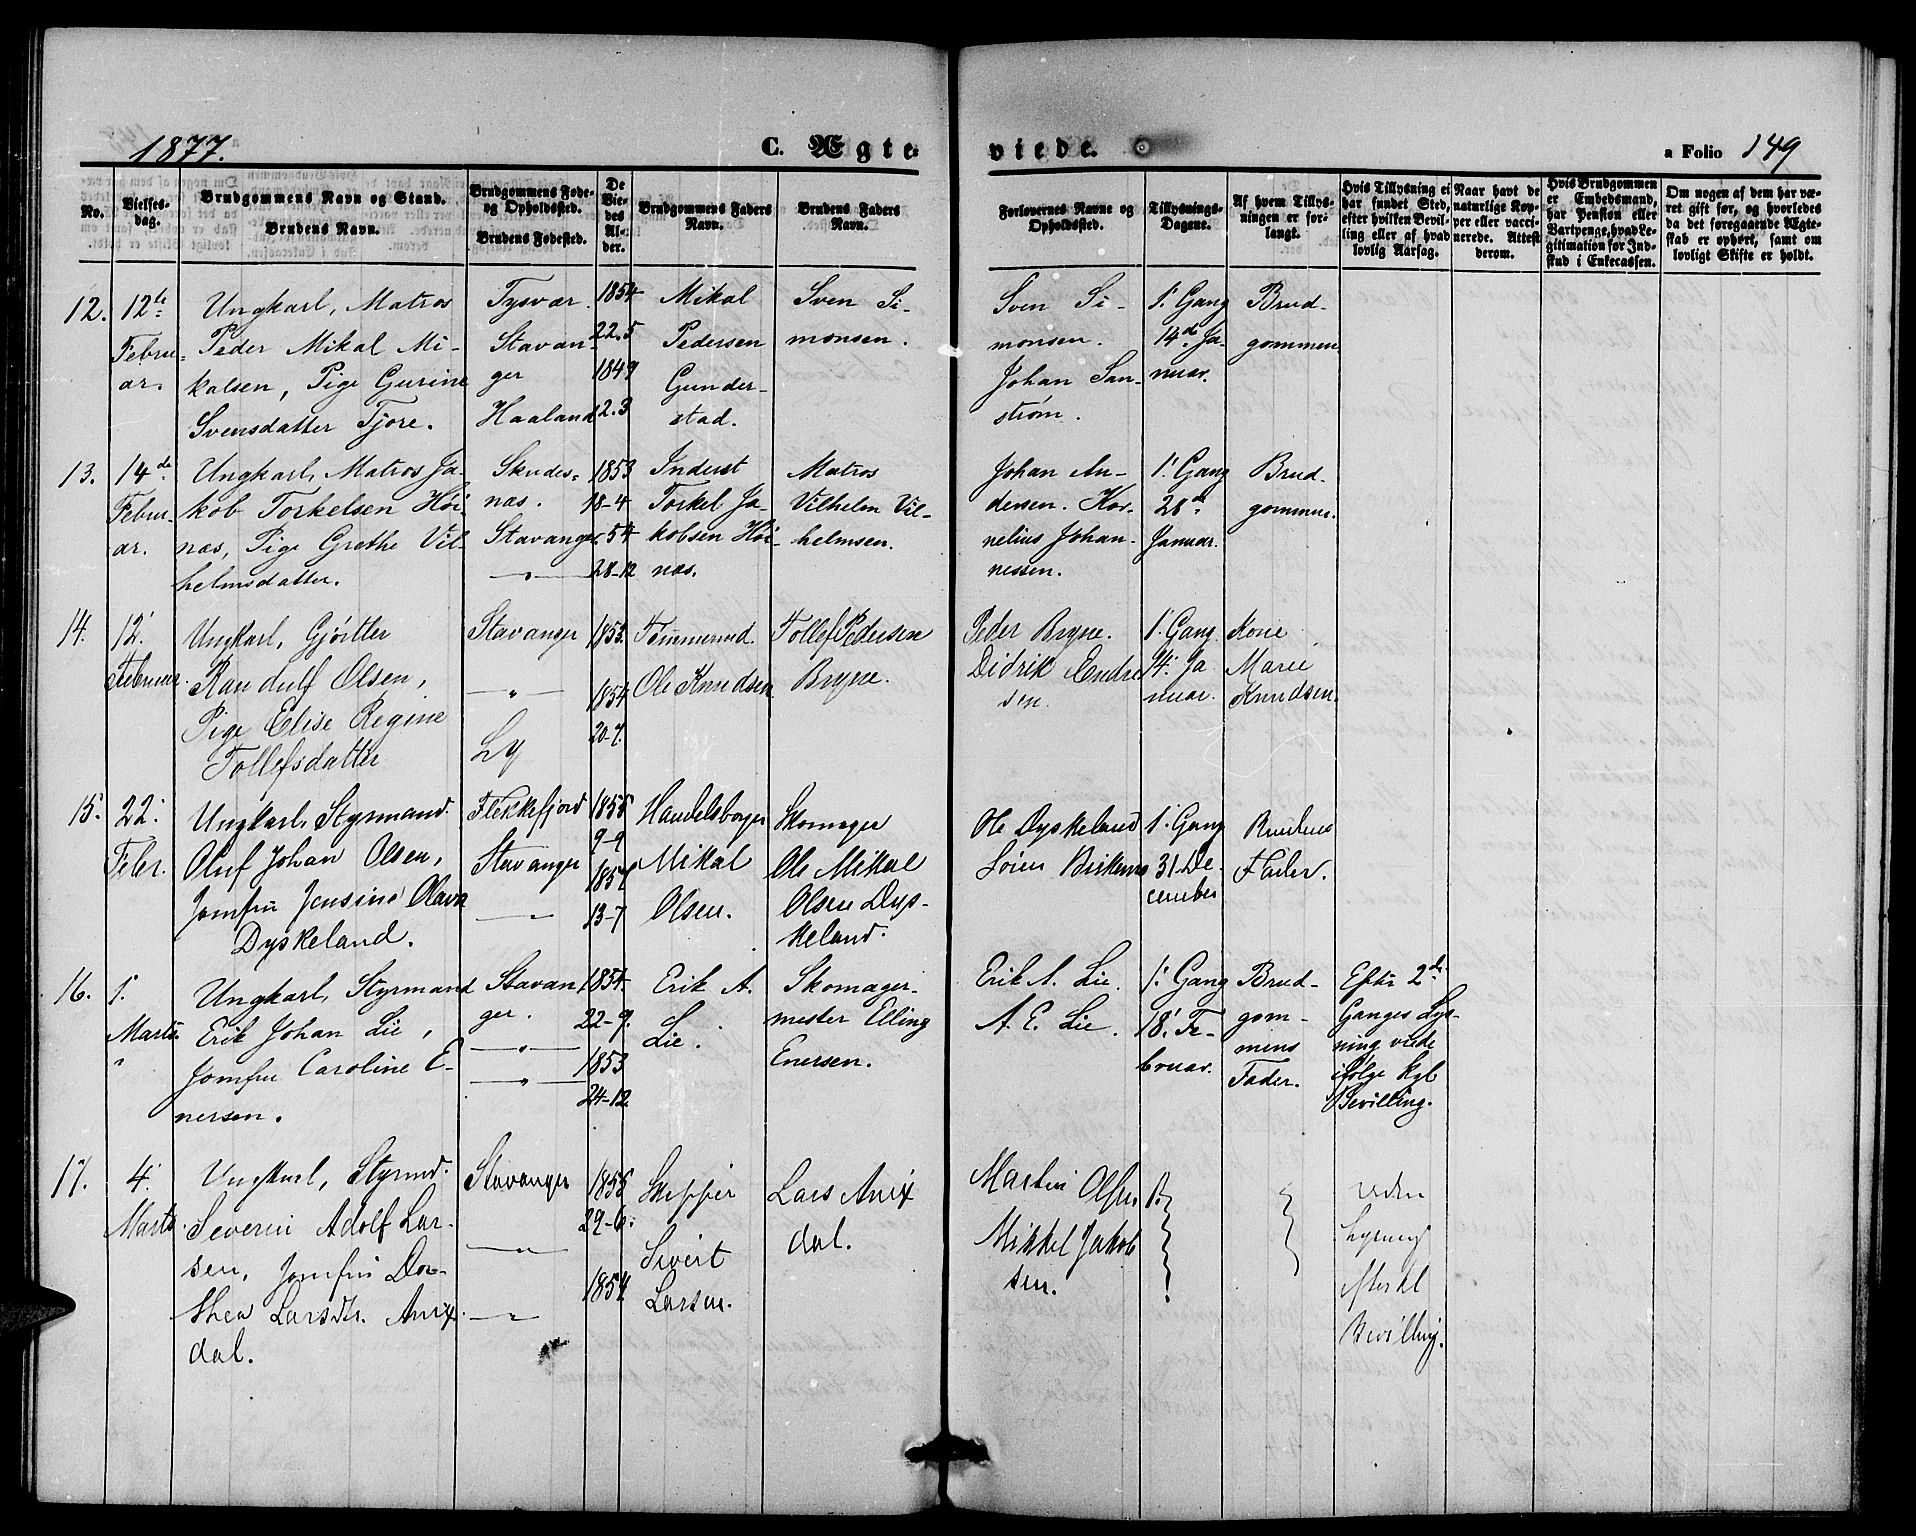 1877.
C. Ægteviede.
a Folio 149
No.
Vielses-
dag.
Brudgommens Navn og Stand.
Brudens Navn.
Brudgommens Føde-
og Opholdssted.
Brudens Fødested.
De
Vie-
des
Al-
der.
Brudgommens Faders
Navn.
Brudens Faders
Navn.
Forlovernes Navne og
Opholdssted.
Tillysnings-
Dagene.
Af hvem Tillys-
ningen er for-
langt.
Hvis Tillysning ei
har fundet Sted,
efter hvilken Bevil-
ling eller af hvad
lovlig Aarsag.
Naar havt de
naturlige Kop-
per eller vacci-
nerede. Attest
derom.
Hvis Brudgommen
er Embedsmand,
har Pension eller
Vartpenge, hvad Le-
gitimation for Ind-
skud i Enkecassen.
Om nogen af dem har væ-
ret gift før, og hvorledes
da det foregaaende Ægte-
skab er ophørt, samt om
lovligt Skifte er holdt.
12.
12te
Febru-
ar.
Ungkarl, Matros
Peder Mikal Mi-
kalsen, Pige Gurine
Svensdatter Tjore.
Tysvær
Stavan-
ger
Haaland
1854
22.5
1849
2.3
Mikal
Pedersen
Gunder-
stad.
Sven Si-
monsen.
Sven Si-
monsen.
Johan San-
strøm.
1. Gang
14de Ja-
nuar.
Brud-
gommen.
13.
14de
Febru-
ar.
Ungkarl, Matros Ja-
kob Torkelsen Høi-
næs, Pige Grethe Vil-
helmsdatter.
Skudes-
næs.
Stavanger
—"—
1853
18-4
54
28-12
Inderst
Torkel Ja-
kobsen Høi-
næs.
Matros
Vilhelm Vil-
helmsen.
Johan An-
dersen. Kor-
nelius Johan-
nessen.
1. Gang
28de
Januar.
Brud-
gommen.
14.
12.
Februar.
Ungkarl, Gjørtler
Randulf Olsen,
Pige Elise Regine
Tollefsdatter
Stavanger
—"—
Ly
1853.
1854
20-7.
Tømmermd.
Ole Knudsen
Tollef Pedersen
Bryne.
Peder Bryne.
Didrik Endre
sen.
1. Gang
14. Ja
nuar.
Kone
Marie
Knudsen.
15.
22.
Febr.
Ungkarl, Styrmand
Oluf Johan Olsen,
Jomfru Jensine Olava
Dyskeland.
Flekkefjord
Stavanger
—"—
1855
9-9
1857
13-7
Handelsborger
Mikal
Olsen.
Skomager
Ole Mikal
Olsen Dys-
keland.
Ole Dyskeland
1. Gang
31 De-
cember
Brudens
Fader.
16.
1.
Marts.
"
Ungkarl, Styrmand
Erik Johan Lie,
Jomfru Caroline E-
nersen.
Stavan
ger.
—"—
—"—
1854.
22-9.
1853
24-12
Erik A.
Lie.
Skomager-
mester Elling
Enersen.
Erik A. Lie.
A. E. Lie.
1. Gang
18. Fe-
bruar.
Brud-
gom-
mens
Fader.
Efter 2den
Ganges Lys-
ning viede
ifølge kgl
Bevilling.
17.
4.
Marts.
Ungkarl, Styrmd.
Severin Adolf Lar-
sen, Jomfru Do-
thea Larsdtr. Anix
dal.
Stavanger
—"—
—"—
1855
29-6.
1854
Skipper
Sivert
Larsen.
Lars Anix
dal.
Martin Olsen
Mikkel Jakob
sen.
uden
Lysning
efter kl
Bevilling.